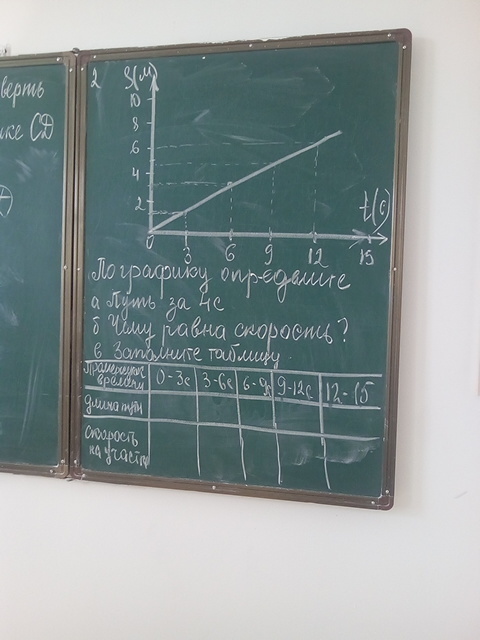 верть
ике CD
2
S(м)
10
8
6
4
2
0
3
6
9
12
15
t(с)
По графику определите
а Путь за 4с
б Чему равна скорость?
в Заполните таблицу
Промежуток времени
0-3с
3-6с
6-9с
9-12с
12-15
длина пути
скорость на участке